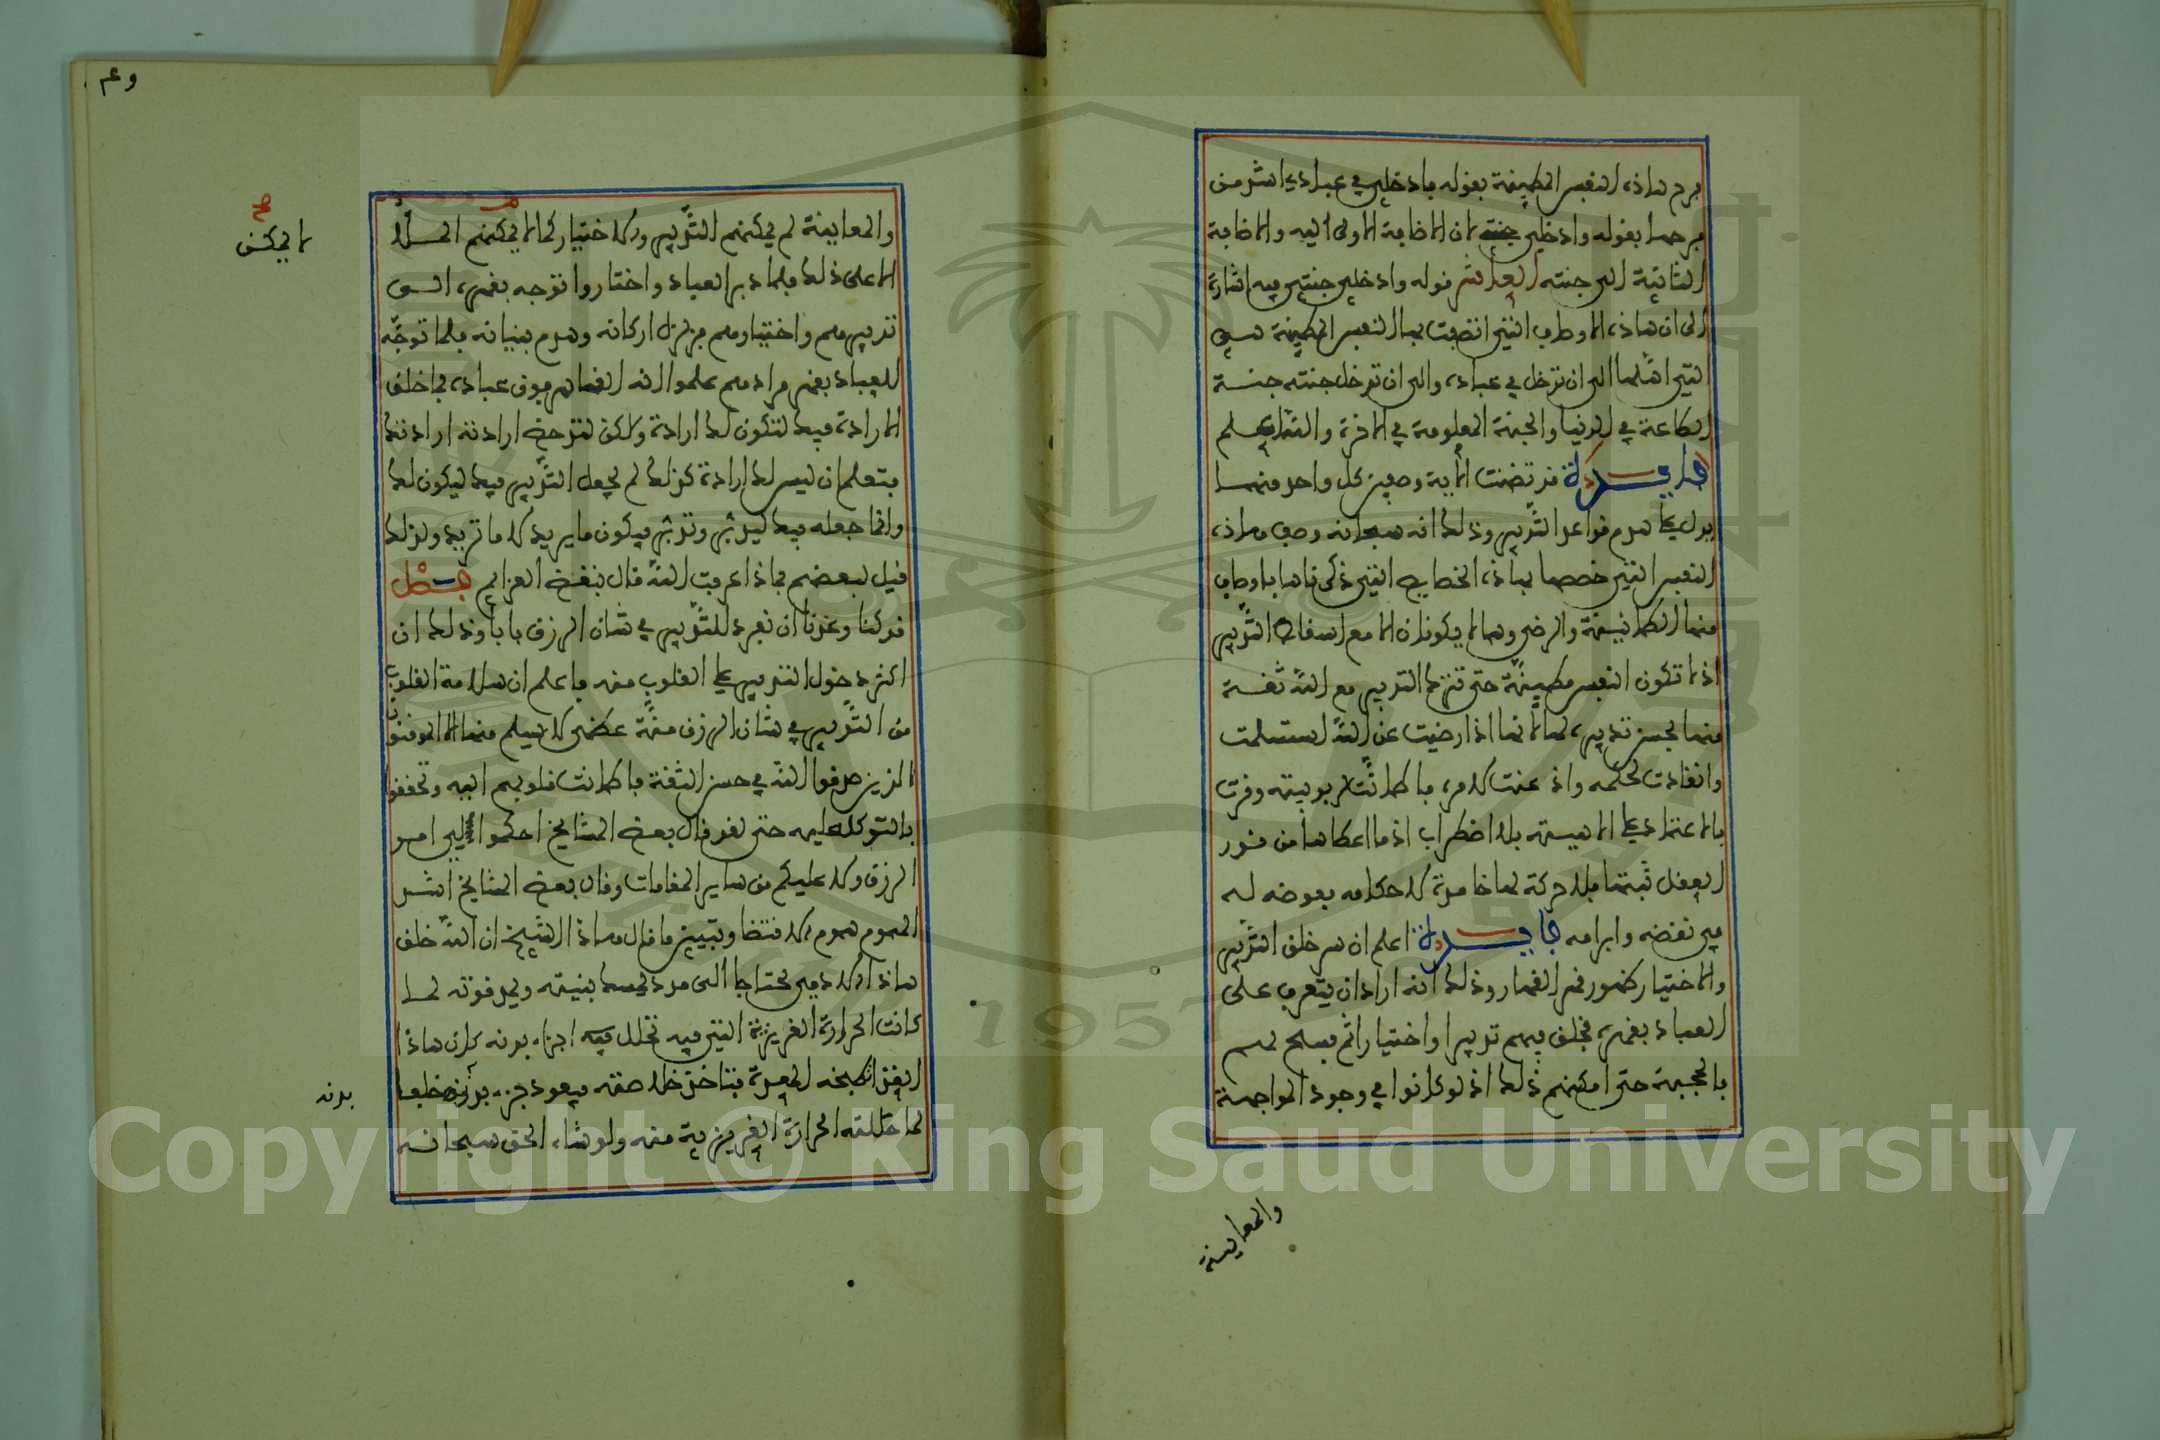 فرح هاذه النفس المطمئنة بقوله فادخلي في عبادي اشد من
فرحها بقوله وادخلي جنتي لان الاضافة الاولى اليه والاضافة
الثانية الى جنته العاشر قوله وادخلي جنتي فيه اشارة
الى ان هاذه الاوصاف التي اتصفت بها النفس المطمئنة هي
التي اهلتها الى ان تدخل في عباده والى ان تدخل جنته جنة
الطاعة في الدنيا والجنة المعلومة في الاخرة والله اعلم
فايدة قد تضمنت الاية وصفين كل واحد منهما
يدل على هدم قواعد التدبير وذلك انه سبحانه وصف هاذه
النفس التي خصصها بهاذه الخصايص التي ذكرناها باوصاف
منها الطمانينة والرضى وهما لا يكونان الا مع اسقاط التدبير
اذ لا تكون النفس مطمئنة حتى تترك التدبير مع الله ثقة
منها بحسن تدبيره لها لانها اذا رضيت عن الله استسلمت
وانقادت لحكمه واذعنت لامره فاطمانت لربوبيته وقرت
بالاعتماد على الاهيته بلا اضطراب اذ ما اعطاها من نور
العقل ثبتها فلا حركة لها خامدة لاحكامه مفوضة له
في نقضه وابرامه فايدة اعلم ان سر خلق التدبير
والاختيار ظهور قهر القهار وذلك انه اراد ان يتعرف على
العباد بقهره فخلق فيهم تدبيرا واختيارا ثم فسح لهم
بالحجبة حتى امكنهم ذلك اذ لو كانوا في وجود المواجهة
والمعاينة
والمعاينة لم يمكنهم التدبير ولاختيار كما لا يمكنهم الملا
الاعلى ذلك فلما دبر العباد واختاروا توجه بقهره الى
تدبيرهم واختيارهم فزلزل اركانه وهدم بنيانه فلما توجه
للعباد بقهر مرادهم علموا انه القاهر فوق عباده فما خلق
الارادة فيك لتكون لك ارادة ولكن لتدحض ارادته ارادتك
فتعلم ان ليس لك ارادة كذلك لم يجعل التدبير فيك ليكون لك
وانما جعله فيك ليدبر وتدبر فيكون ما يريد لا ما تريد ولذلك
قيل لبعضهم بماذا عرفت الله قال بنقض العزايم فصل
قد كنا وعدنا ان نفرد للتدبير في شان الرزق بابا وذلك ان
اكثر دخول التدبير على القلوب منه فاعلم ان سلامة القلوب
من التدبير في شان الرزق منة عظمى لا يسلم منها الا الموفقون
الذين صدقوا الله في حسن الثقة فاطمانت قلوبهم اليه وتحققوا
بالتوكل عليه حتى لقد قال بعض المشايخ احكموا لي امر
الرزق ولا عليكم من ساير المقامات وقال بعض المشايخ اشد
الهموم هموم الاقتضا وتبيين ما قال هاذا الشيخ ان الله خلق
هاذا الادمي محتاجا الى مدد يمسك بنيته ويمد قوته لما
كانت الحرارة الغريزية التي فيه تحلل فيه اجزاء بدنه كان هاذا
الغذا تطبخه المعدة فتاخذ خلاصته فيعود جزء بدنه خلفا
لما حللته الحرارة الغريزية منه ولو شاء الحق سبحانه
لا يمكن
بدنه
Copyright © King Saud University
1957